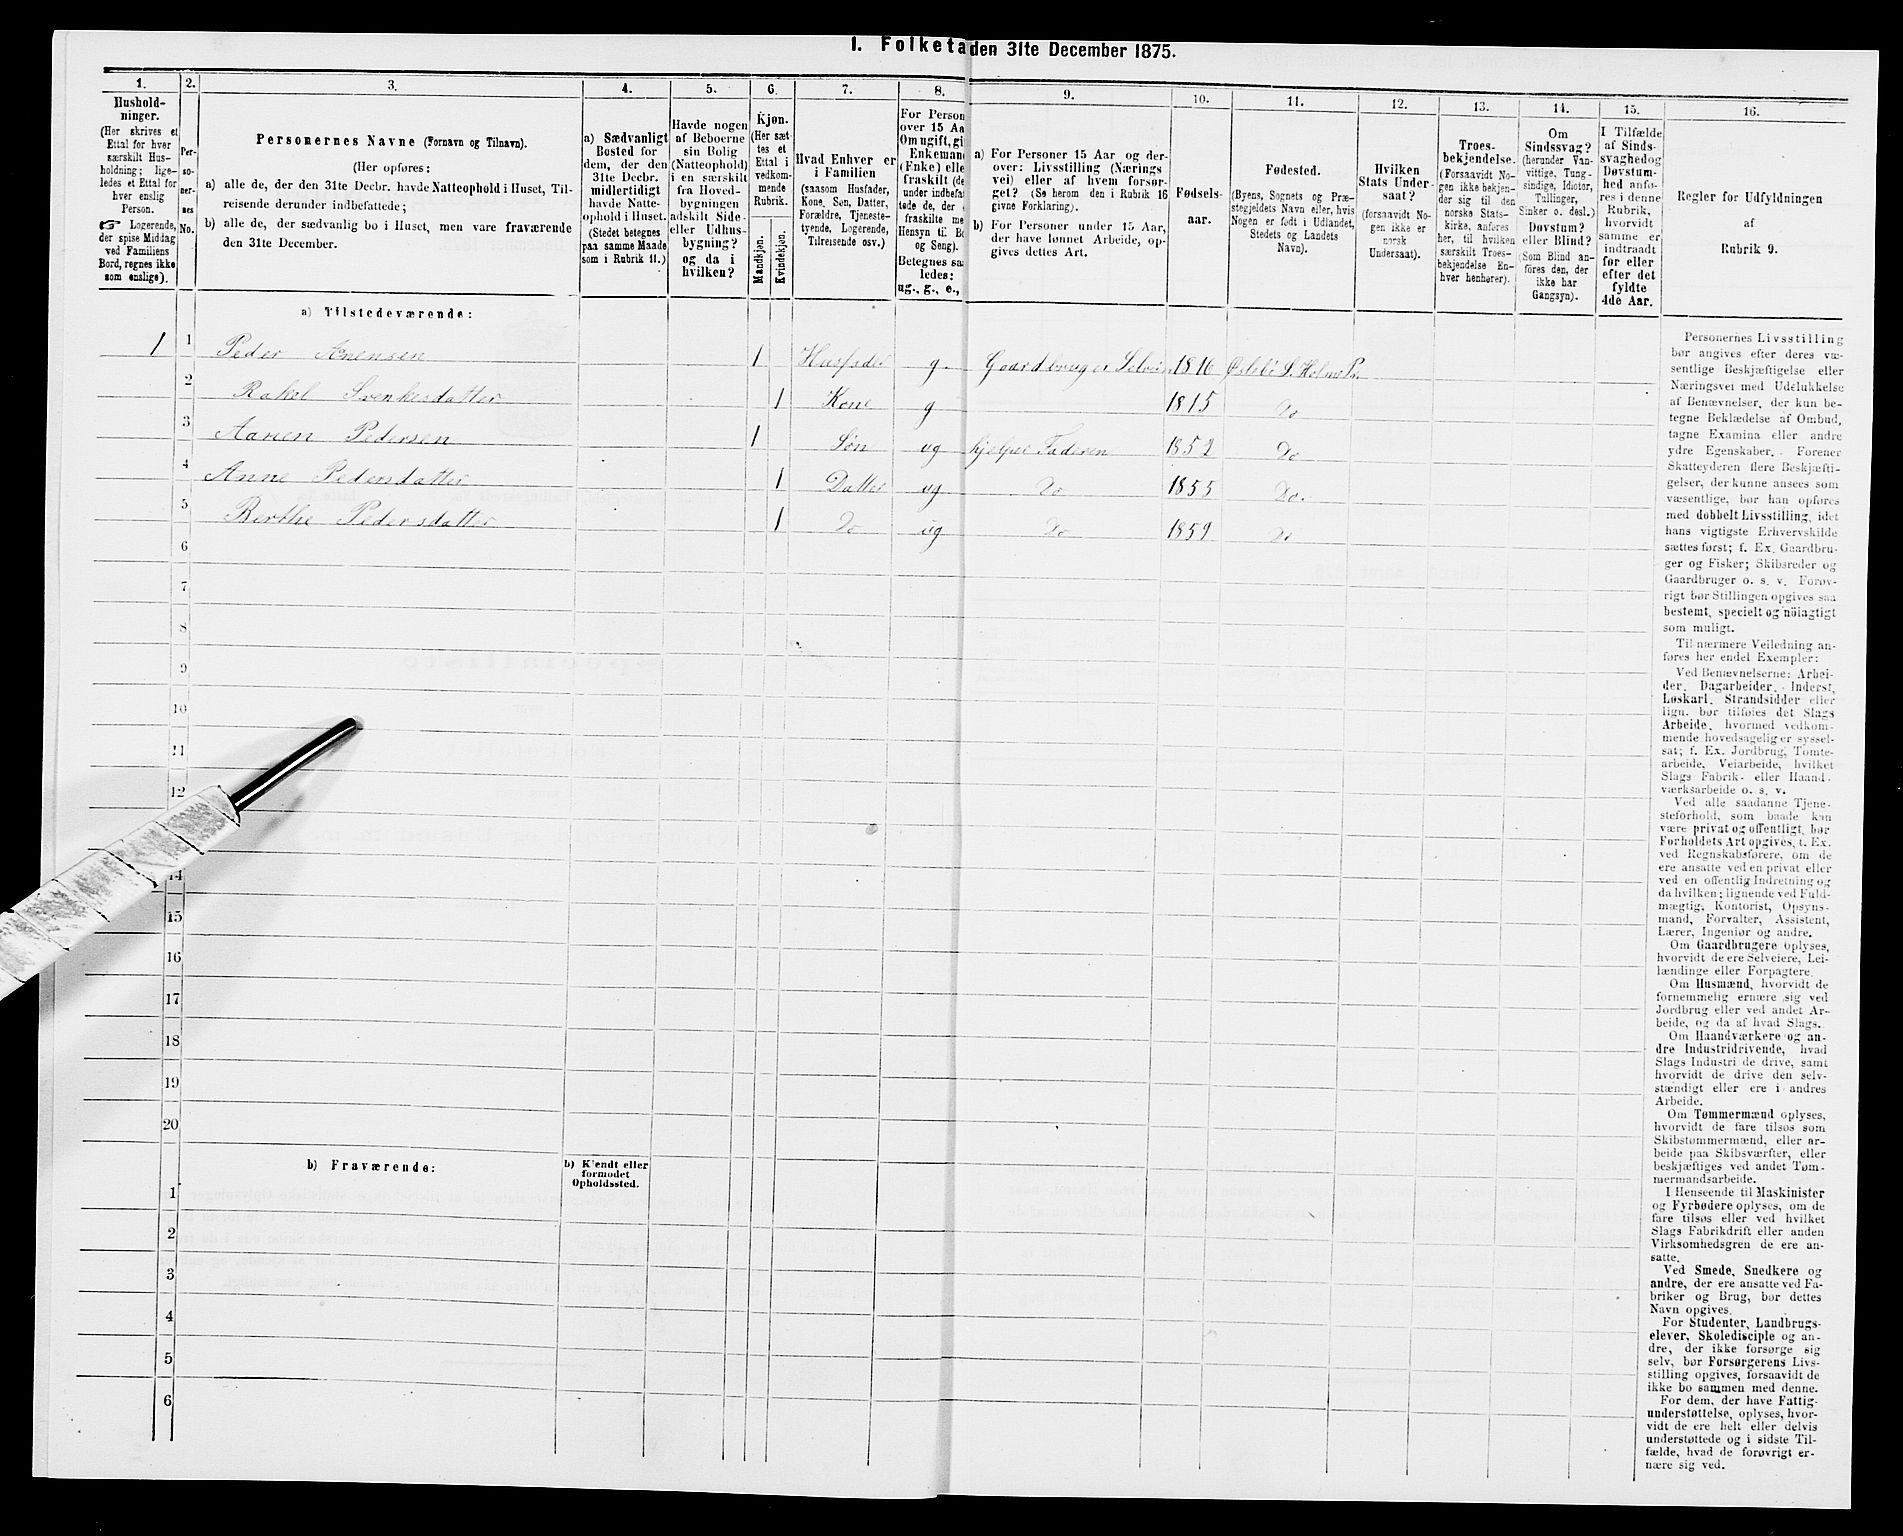 1. Folketa den 31te December 1875.
1.
Hushold-
ninger.
(Her skrives et
Ettal for hver
særskilt Hus-
holdning; lige-
ledes et Ettal for
hver enslig
Person.
☞ Logerende,
der spise Middag
ved Familiens
Bord, regnes ikke
som enslige).
2.
Per-
so-
ner-
nes
No.
3.
Personernes Navne (Fornavn og Tilnavn).
(Her opføres:
a) alle de, der den 31te Decbr. havde Natteophold i Huset, Til-
reisende derunder indbefattede;
b) alle de, der sædvanlig bo i Huset, men vare fraværende
den 31te December.
4.
a) Sædvanligt
Bosted for
dem, der den
31te Decbr.
midlertidigt
havde Natte-
ophold i Huset.
(Stedet betegnes
paa samme Maade
som i Rubrik 11.)
5.
Havde nogen
af Beboerne
sin Bolig
(Natteophold)
i en særskilt
fra Hoved-
bygningen
adskilt Side-
eller Udhus-
bygning?
og da i
hvilken?
6.
Kjøn.
(Her sæt-
tes et
Ettal i
vedkom-
mende
Rubrik.
Mandkjøn.
Kvindekjøn.
7.
Hvad Enhver er
i Familien
(saasom Husfader,
Kone, Søn, Datter,
Forældre, Tjeneste-
tyende, Logerende,
Tilreisende osv.)
8.
For Person
over 15 Aa
Om ugift, gi
Enkemand
(Enke) elle
fraskilt (de
under indbefat
tede de, der
fraskilte me
Hensyn til Bo
og Seng).
Betegnes saa
ledes:
ug., g., e.,
9.
a) For Personer 15 Aar og der-
over: Livsstilling (Nærings
vei) eller af hvem forsør-
get? (Se herom den i Rubrik 16
givne Forklaring).
b) For Personer under 15 Aar,
der have lønnet Arbeide, op-
gives dettes Art.
10.
Fødsels-
aar.
11.
Fødested.
(Byens, Sognets og Præ-
stegjeldets Navn eller, hvis
Nogen er født i Udlandet,
Stedets og Landets
Navn).
12.
Hvilken
Stats Under-
saat?
(forsaavidt No-
gen ikke er
norsk
Undersaat).
13.
Troes-
bekjendelse.
(Forsaavidt No-
gen ikke bekjen-
der sig til den
norske Stats-
kirke, anføres
her, til hvilken
særskilt Troes-
bekjendelse En-
hver henhører).
14.
Om
Sindssvag?
(herunder Van-
vittige, Tung-
sindige, Idioter,
Tullinger,
Sinker o. desl.)
Døvstum?
eller Blind?
(Som Blind an-
føres den, der
ikke har
Gangsyn).
15.
I Tilfælde
af Sinds-
svaghed og
Døvstum-
hed anfø-
res i denne
Rubrik,
hvorvidt
samme er
indtraadt
før eller
efter det
fyldte
4de Aar.
16.
Regler for Udfyldningen
af
Rubrik 9.
a) Tilstedeværende:
1 1 Peder Anensen 1 Husfader g. Gaardbruger Selveier 1816 S. Holms Pr.
2 Rakel Svenkesdatter 1 Kone g 1815 Do
3 Aanen Pedersen 1 Søn ug hjelper Faderen 1852 Do
4 Anne Pedersdatter 1 Datter ug Do 1855 Do.
5 Berthe Pedersdatter 1 Do ug Do 1859 Do
6
7
8
9
10
11
12
14
15
16
17
18
19
20
b) Fraværende:
b) Kendt eller
formodet
Opholdssted.
1
2
3
4
5
6
Personernes Livsstilling
bør angives efter deres væ-
sentlige Beskjæftigelse eller
Næringsvei med Udelukkelse
af Benævnelser, der kun be-
tegne Beklædelse af Ombud,
tagne Examina eller andre
ydre Egenskaber. Forener
Skatteyderen flere Beskjæfti-
gelser, der kunne ansees som
væsentlige, bør han opføres
med dobbelt Livsstilling, idet
hans vigtigste Erhvervskilde
sættes først; f. Ex. Gaardbru-
ger og Fisker; Skibsreder og
Gaardbruger o. s. v. Forøv-
rigt bør Stillingen opgives saa
bestemt, specielt og nøiagtigt
som muligt.
Til nærmere Veiledning an-
føres her endel Exempler:
Ved Benævnelserne: Arbei-
der, Dagarbeider, Inderst,
Løskarl, Strandsidder eller
lign. bør tilføies det Slags
Arbeide, hvormed vedkom-
mende hovedsagelig er syssel-
sat; f. Ex. Jordbrug, Tomte-
arbeide, Veiarbeide, hvilket
Slags Fabrik- eller Haand-
værksarbeide o. s. v.
Ved alle saadanne Tjene-
steforhold, som baade kan
være privat og offentligt, bør
Forholdets Art opgives, f. Ex.
ved Regnskabsførere, om de
ere ansatte ved en privat eller
ved en offentlig Indretning og
da hvilken; lignende ved Fuld-
mægtig, Kontorist, Opsyns-
mand, Forvalter, Assistent,
Lærer, Ingeniør og andre.
Om Gaardbrugere oplyses,
hvorvidt de ere Selveiere, Lei-
lændinge eller Forpagtere.
Om Husmænd, hvorvidt de
fornemmelig ernære sig ved
Jordbrug eller ved andet Ar-
beide, og da af hvad Slags.
Om Haandværkere og an-
dre Industridrivende, hvad
Slags Industri de drive, samt
hvorvidt de drive den selv-
stændigt eller ere i andres
Arbeide.
Om Tømmermænd oplyses,
hvorvidt de fare tilsøs som
Skibstømmermænd, eller ar-
beide paa Skibsværfter, eller
beskjæftiges ved andet Tøm-
mermandsarbeide.
I Henseende til Maskinister
og Fyrbødere oplyses, om de
fare tilsøs eller ved hvilket
Slags Fabrikdrift eller anden
Virksomhedsgren de ere an-
satte.
Ved Smede, Snedkere og
andre, der ere ansatte ved Fa-
briker og Brug, bør dettes
Navn opgives.
For Studenter, Landbrugs-
elever, Skoledisciple og an-
dre, der ikke forsørge sig
selv, bør Forsørgerens Livs-
stilling opgives, forsaavidt de
ikke bo sammen med denne.
For dem, der have Fattig-
understøttelse, oplyses, hvor-
vidt de ere helt eller delvis
understøttede og i sidste Til-
fælde, hvad de forøvrigt er-
nære sig ved.